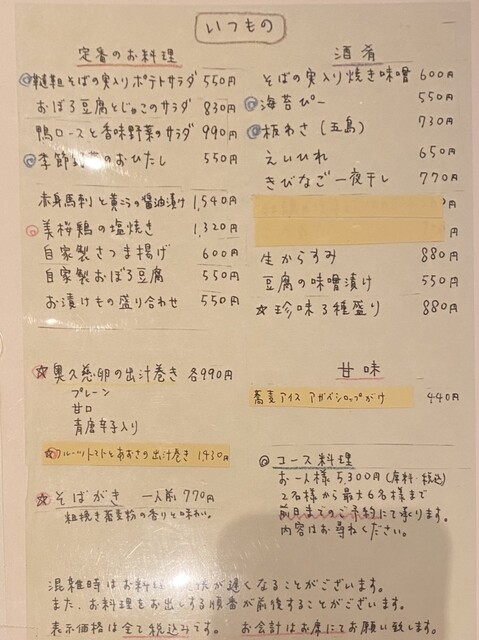 いつもの
定番のお料理
韃靼そばの実入りポテトサラダ 550円
おぼろ豆腐とじゃこのサラダ 830円
鴨ロースと香味野菜のサラダ 990円
季節野菜のおひたし 550円
赤身馬刺と黄ニラの醤油漬け 1,540円
美桜鶏の塩焼き 1,320円
自家製さつま揚げ 600円
自家製おぼろ豆腐 550円
お漬けもの盛り合わせ 550円
☆奥久慈卵の出汁巻き 各990円
プレーン
甘口
青唐辛子入り
☆フルーツトマトとあおさの出汁巻き 1,430円
☆そばがき 一人前 770円
粗挽き蕎麦粉の香りと味わい。
酒肴
そばの実入り焼き味噌 600円
海苔ぴー 550円
板わさ(五島) 730円
えいひれ 650円
きびなご一夜干し 770円
円
生からすみ 880円
豆腐の味噌漬け 550円
☆珍味3種盛り 880円
甘味
蕎麦アイス アガベシロップがけ 440円
◎コース料理
お一人様 5,300円(席料・税込)
2名様から最大6名様まで
前日までのご予約にて承ります。
内容はお尋ねください。
混雑時はお料理の が遅くなることがございます。
また、お料理をお出しする順番が前後することがございます。
表示価格は全て税込みです。 お会計はお席にてお願い致します。